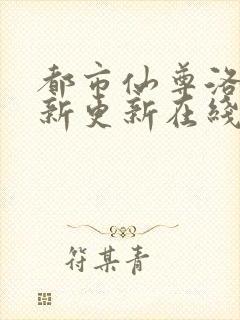 都市仙尊洛
新更新在线
符某青